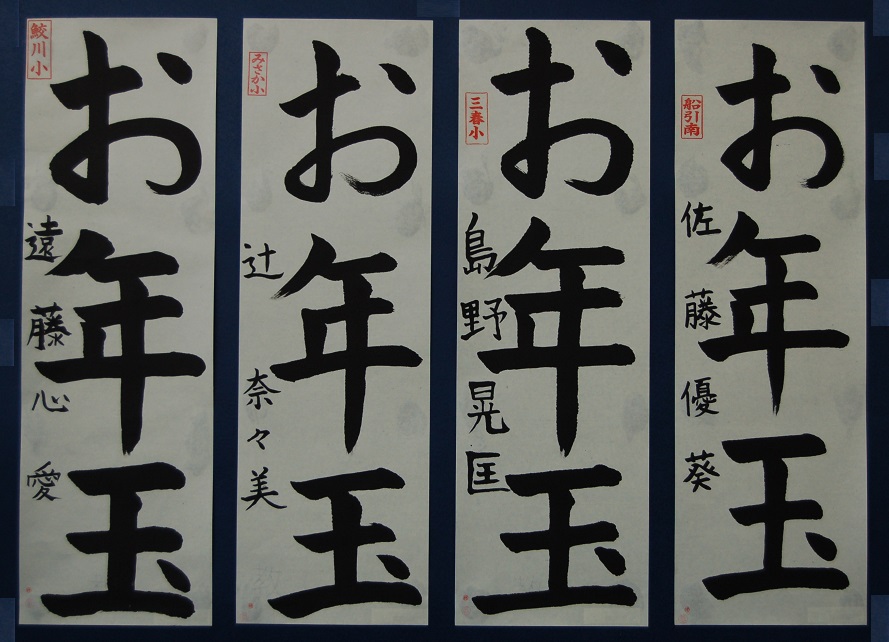 船引南
お年玉
佐藤優葵
三春小
お年玉
島野晃匡
みさか小
お年玉
辻奈々美
鮫川小
お年玉
遠藤心愛